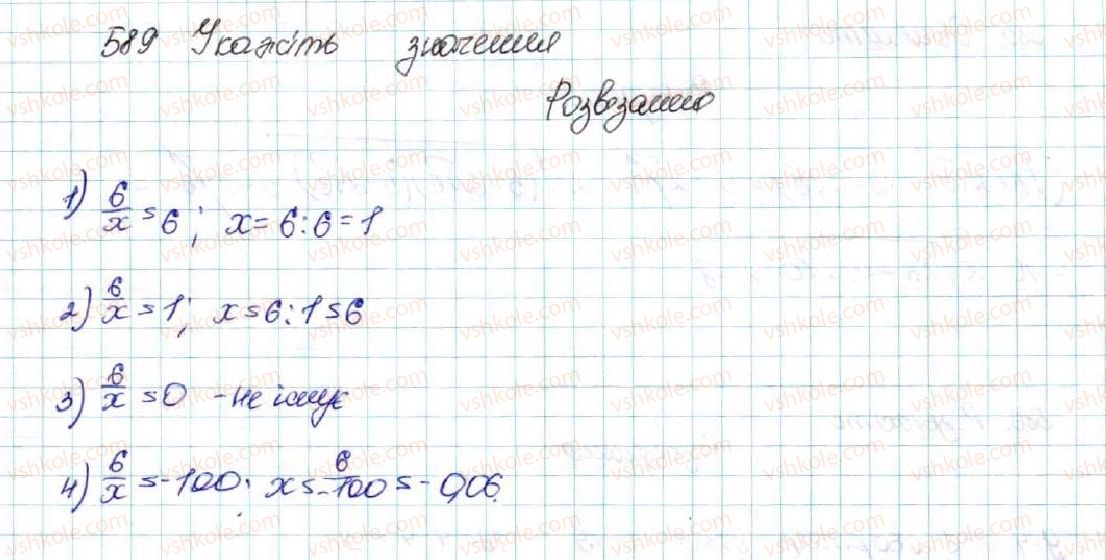 589 Укажіть значення
Розвезанно
1) 6/x = 6; x = 6:6 = 1
2) 6/x = 1; x = 6:1 = 6
3) 6/x = 0 - не існує
4) 6/x = -100. x = 6/-100 = -0,06.